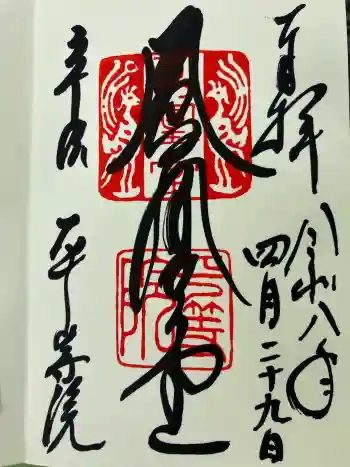 奉拝
令和八年
四月二十九日
鳳凰堂
宇治
平等院